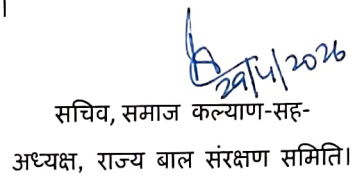 ।
29/4/2026
सचिव, समाज कल्याण-सह-
अध्यक्ष, राज्य बाल संरक्षण समिति।